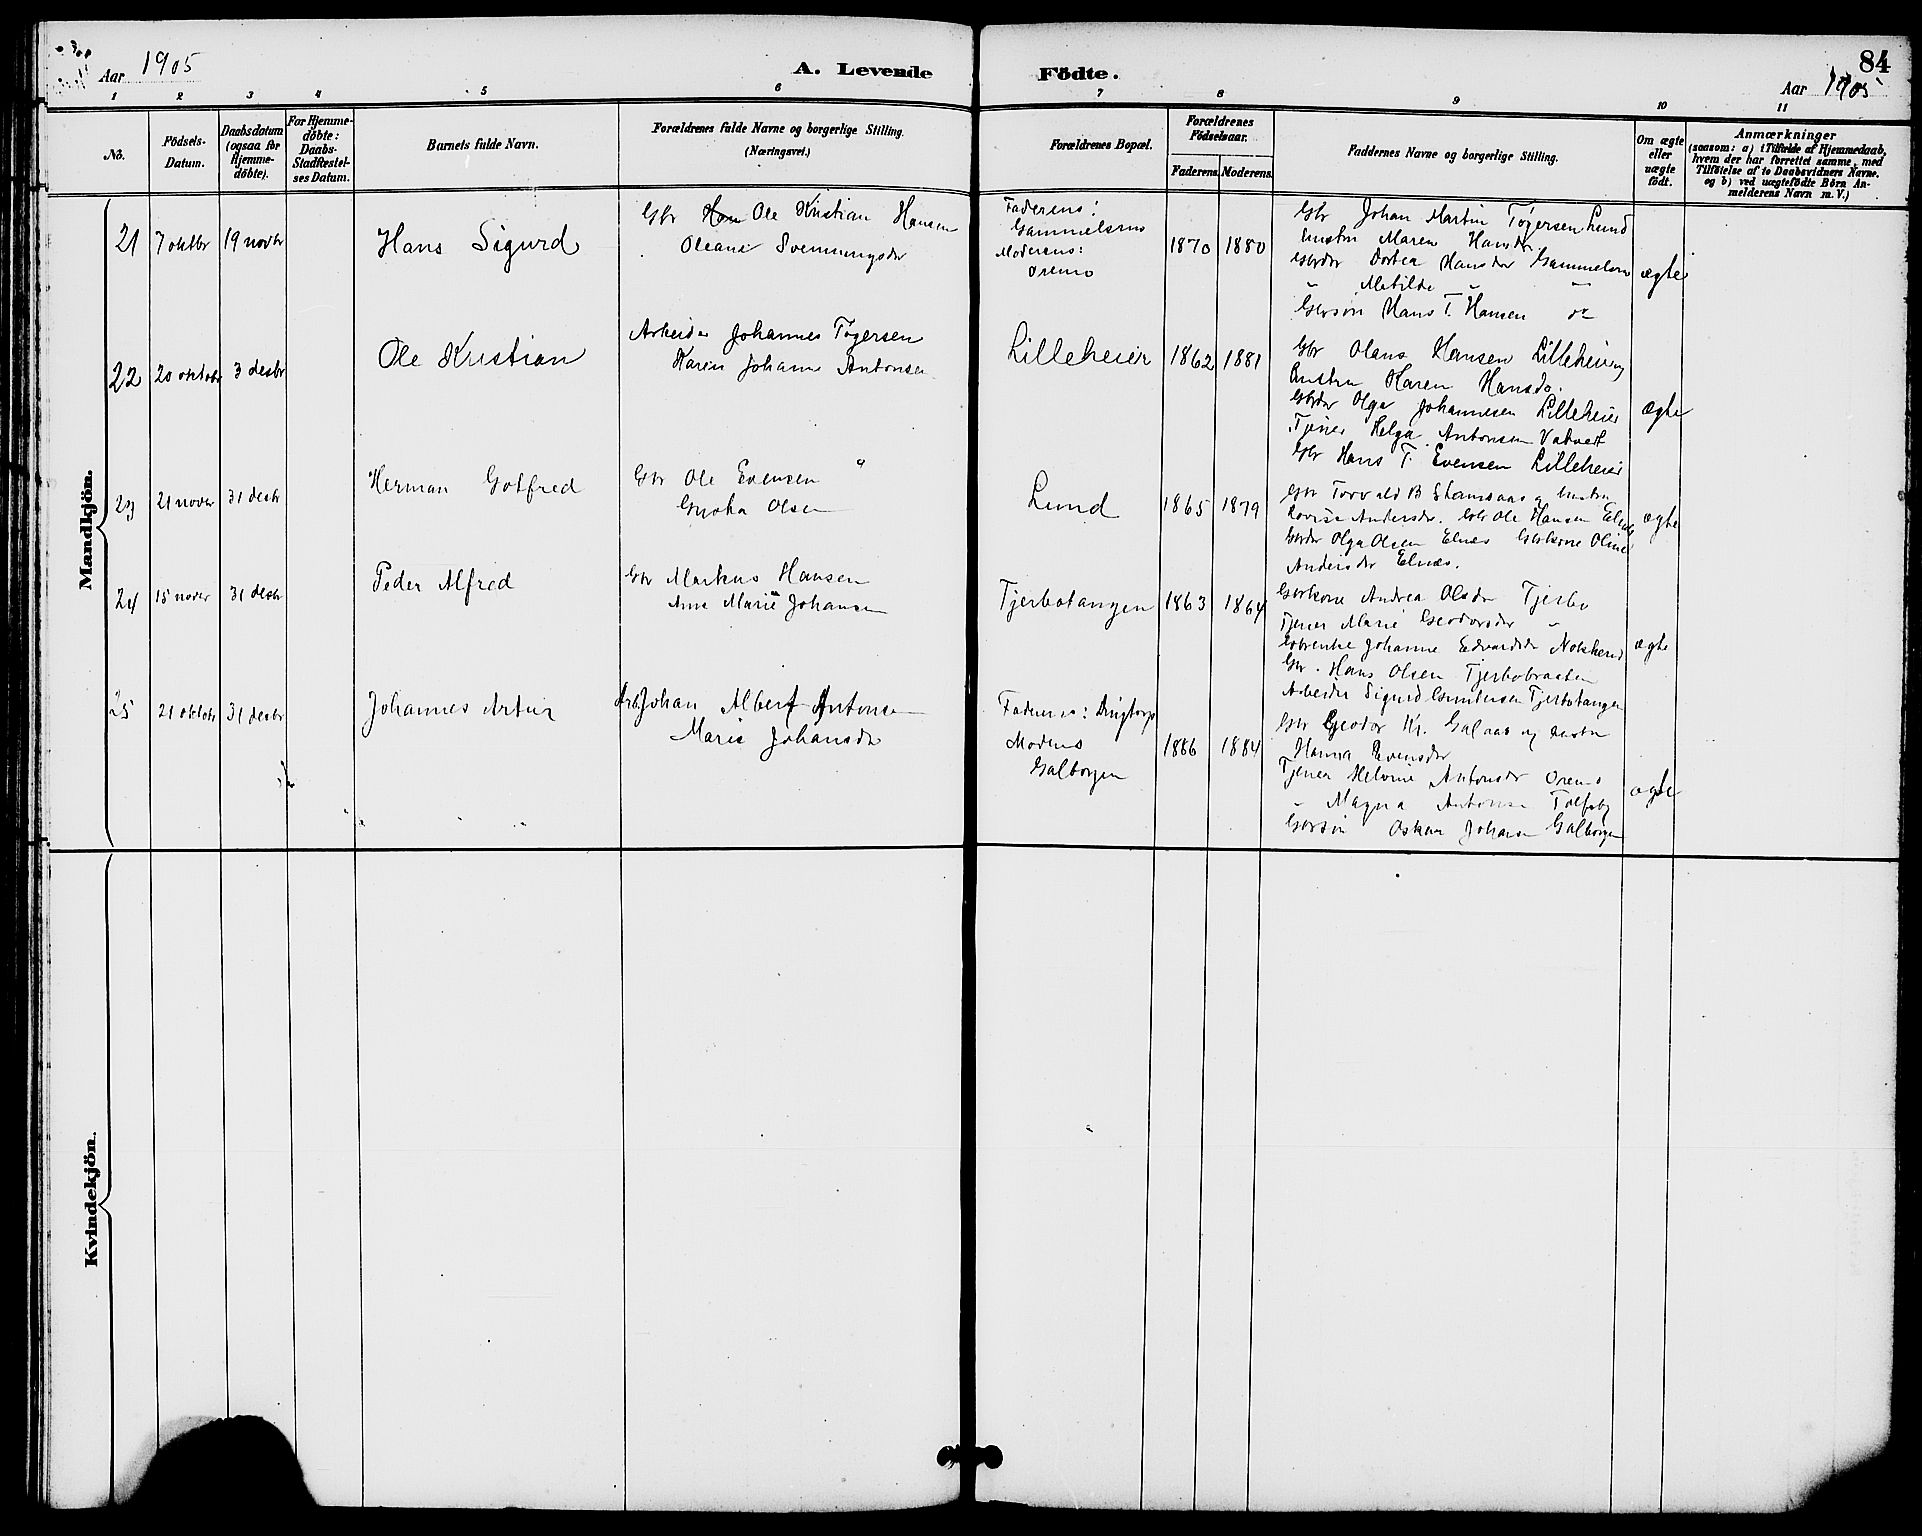 Aar 1905
A. Levende Födte.
84
Aar 1905
1 2 3 4 5 6 7 8 9 10 11
No.
Födsels-Datum.
Daabsdatum (ogsaa for Hjemme-döbte).
For Hjemme-döbte: Daabs-Stadfæstel-ses Datum.
Barnets fulde Navn.
Forældrenes fulde Navne og borgerlige Stilling.
(Næringsvei.)
Forældrenes Bopæl.
Forældrenes Födselsaar.
Faderens. Moderens.
Faddernes Navne og borgerlige Stilling.
Om ægte eller uægte födt.
Anmærkninger
(saasom: a) i Tilfælde af Hjemmedaab,
hvem der har forrettet samme, med
Tilföielse af to Daabsvidners Navne.
og b) ved uægtefödte Börn An-
melderens Navn m. V.)
Mandkjön.
21 7 oktbr 19 novbr
Hans Sigurd
Gbr Ole Kristian Hansen
Oleane Svenningsdr
Faderens:
Gammelsrud
Moderens:
Oremo
1870 1880
Gbr Johan Martin Tøgersen Lund
hustru Maren Hansdr
Gbrdr Dortea Hansdr Gammelsrud
" Matilde " "
Gbrsøn Hans T. Hansen
ægte
22 20 oktobr 3 desbr
Ole Kristian
Arbeider Johannes Tøgersen
Karen Johanne Antonsen
Lilleheier
1862 1881
Gbr Olaus Hansen Lilleheier og
hustru Karen Hansdr.
Gbrdr Olga Johannesen Lilleheier
Tjener Helga Antonsen
Gbr Hans T. Evensen Lilleheier
ægte
23 21 novbr 31 desbr
Herman Gotfred
Gbr Ole Evensen
Olsen
Lund
1865 1879
Gbr Torvald B. og hustru
Lovise Andersdr. Gbr Ole Hansen
Gbrdr Olga Olsen Elnæs Gbrkone
Andersdr Elnæs.
ægte
24 15 novbr 31 desbr
Peder Alfred
Gbr Markus Hansen
Ane Marie Johansen
Tjerbotangen
1863 1864
Gbrkone Andrea Olsdr Tjerbo
Tjener Marie "
Johanne Edvardsdr
Gbr. Hans Olsen Tjerbobraaten
Arbeider Sigurd Gundersen Tjerbotangen
ægte
25 21 oktobr 31 desbr
Johannes Artur
Arb. Johan Albert Antonsen
Marie Johansdr
Faderens:
Moderens
Galborgen
1886 1884
Gbr Kr. og hustru
Hanna Evensdr
Tjener Antonsdr
" Magna Antonsen
Gbrsøn Oskar Johansen Galborgen
ægte
Kvindekjön.